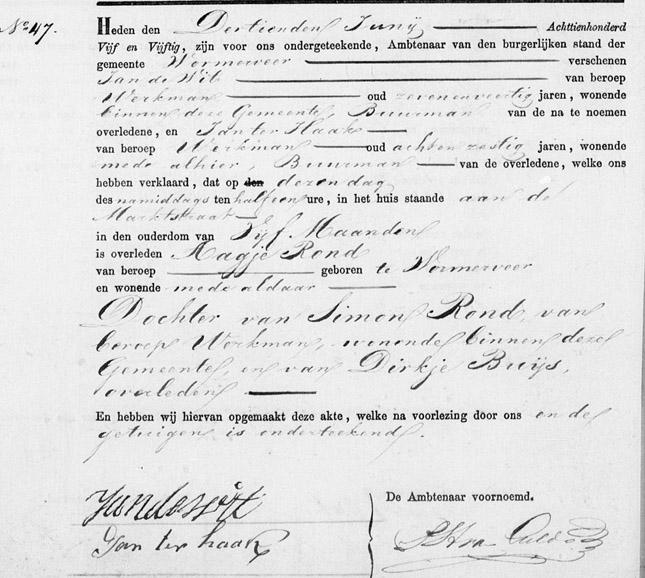 No 47.
Heden den Dertienden Junij Achttienhonderd
Vijf en Vijftig, zijn voor ons ondergeteekende, Ambtenaar van den burgerlijken stand der
gemeente Wormerveer verschenen
Jan de Wit van beroep
Werkman oud zevenenveertig jaren, wonende
binnen deze Gemeente, Buurman van de na te noemen
overledene, en Jan ter Haak
van beroep Werkman oud achtenzestig jaren, wonende
mede alhier, Buurman van de overledene, welke ons
hebben verklaard, dat op den dezen dag
des namiddags ten half een ure, in het huis staande aan de
Marktstraat
in den ouderdom van Vijf Maanden
is overleden Aagje Rond
van beroep geboren te Wormerveer
en wonende mede aldaar
Dochter van Simon Rond, van
beroep Werkman, wonende binnen deze
Gemeente, en van Dirkje Buijs,
overleden
En hebben wij hiervan opgemaakt deze akte, welke na voorlezing door ons en de
getuigen is onderteekend.
Jan de Wit
De Ambtenaar voornoemd.
Jan ter haak